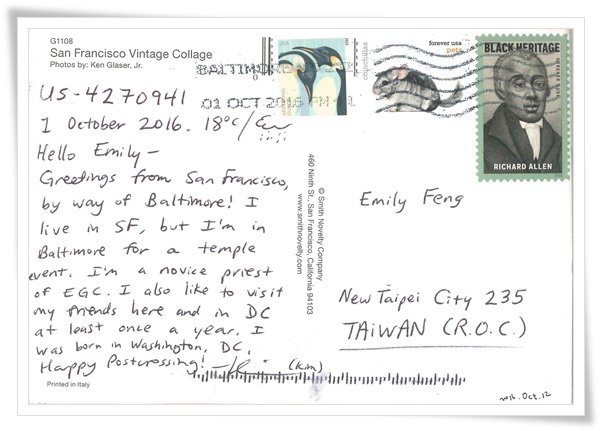 G1108
San Francisco Vintage Collage
Photos by: Ken Glaser, Jr.
BALTIMORE
01 OCT 2016 PM
forever usa
pets
chinchillas
BLACK HERITAGE
RICHARD ALLEN
US-4270941
1 October 2016. 18°C/
Hello Emily –
Greetings from San Francisco,
by way of Baltimore! I
live in SF, but I'm in
Baltimore for a temple
event. I'm a novice priest
of EGC. I also like to visit
my friends here and in DC
at least once a year. I
was born in Washington, DC.
Happy Postcrossing! (km)
Printed in Italy
© Smith Novelty Company
460 Ninth St., San Francisco, California 94103
www.smithnovelty.com
Emily Feng
New Taipei City 235
TAIWAN (R.O.C.)
2016. Oct. 12